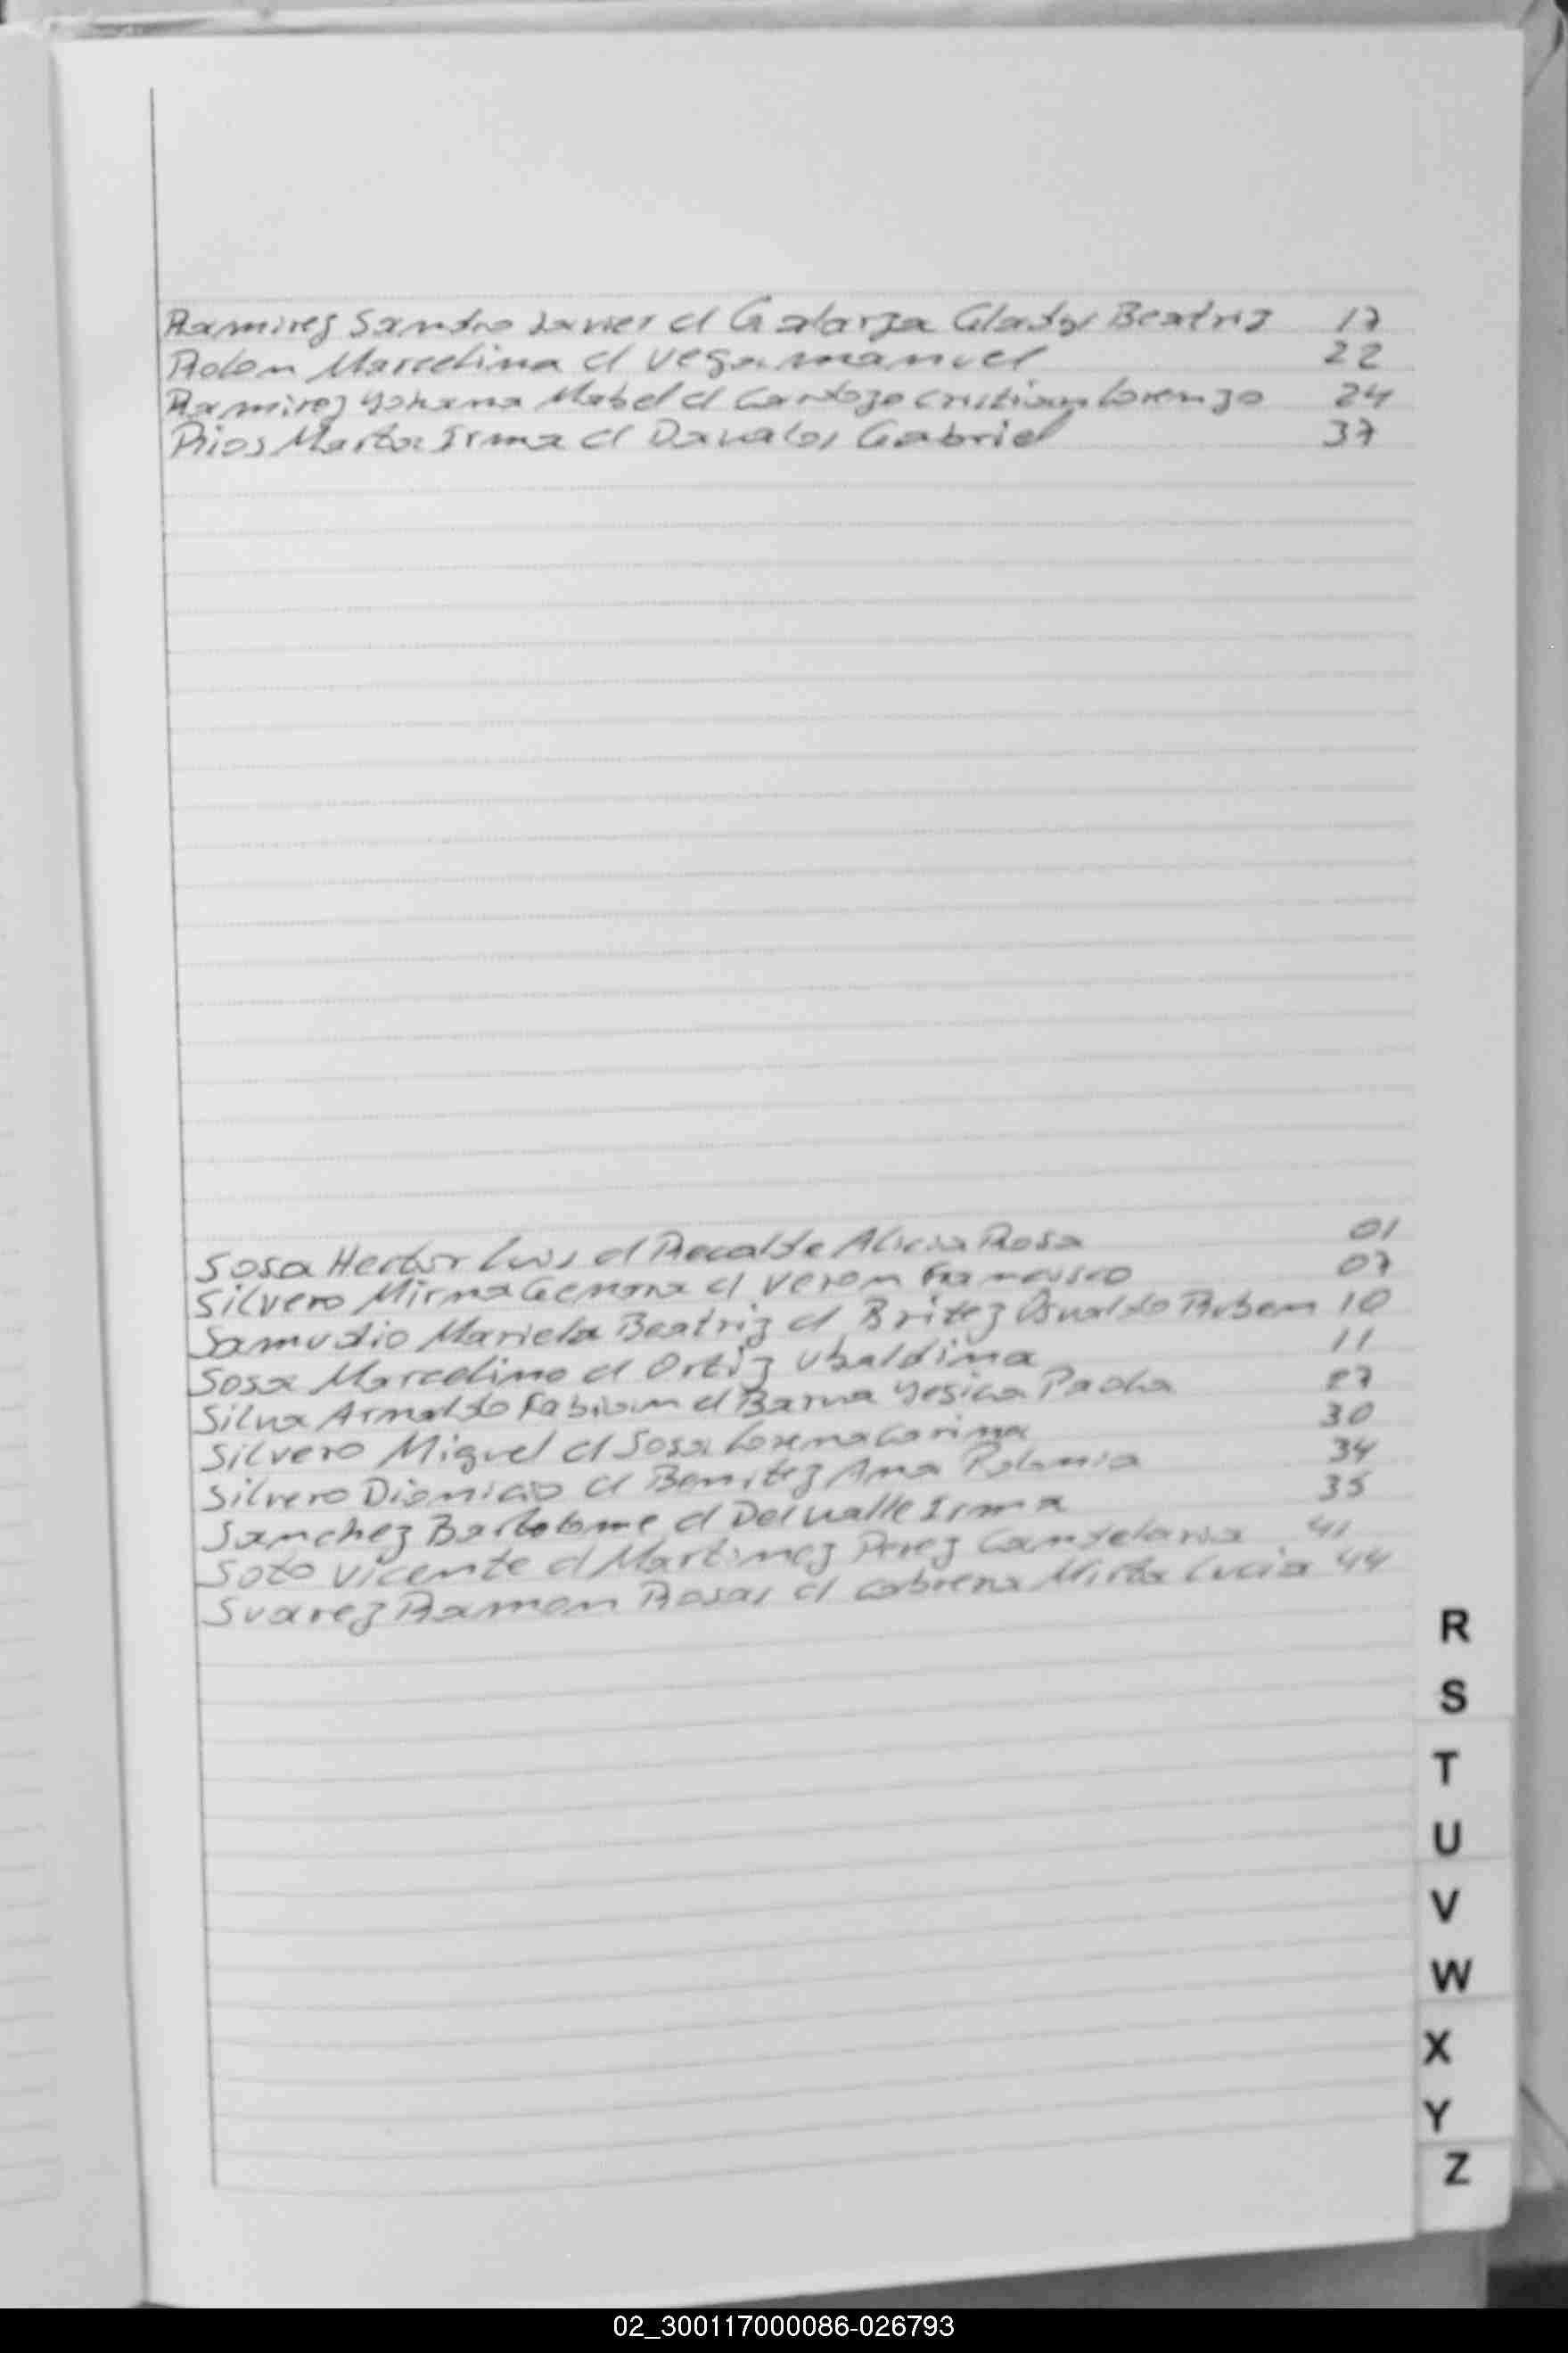 Ramirez Sandro Javier c/ Galarza Gladys Beatriz 17
Rolon Marcelina c/ Vega Manuel 22
Ramirez Yohana Mabel c/ Cardozo Cristian Lorenzo 24
Rios Marta Irma c/ Davalos Gabriel 37
Sosa Hector Luis c/ Recalde Alicia Rosa 01
Silvero Mirna c/ Veron Francisco 07
Samudio Mariela Beatriz c/ Britez Osvaldo Ruben 10
Sosa Marcelino c/ Ortiz Ubaldina 11
Silva Arnaldo Fabian c/ Barua Yesica Paola 27
Silvero Miguel c/ Sosa Lorena Carina 30
Silvero Dionicio c/ Benitez Ana 34
Sanchez Bartolome c/ Delvalle Irma 35
Soto Vicente c/ Martinez Perez Candelaria 41
Suarez Ramon Rosas c/ Cabrera Mirta Lucia 44
R
S
T
U
V
W
X
Y
Z
02_300117000086-026793